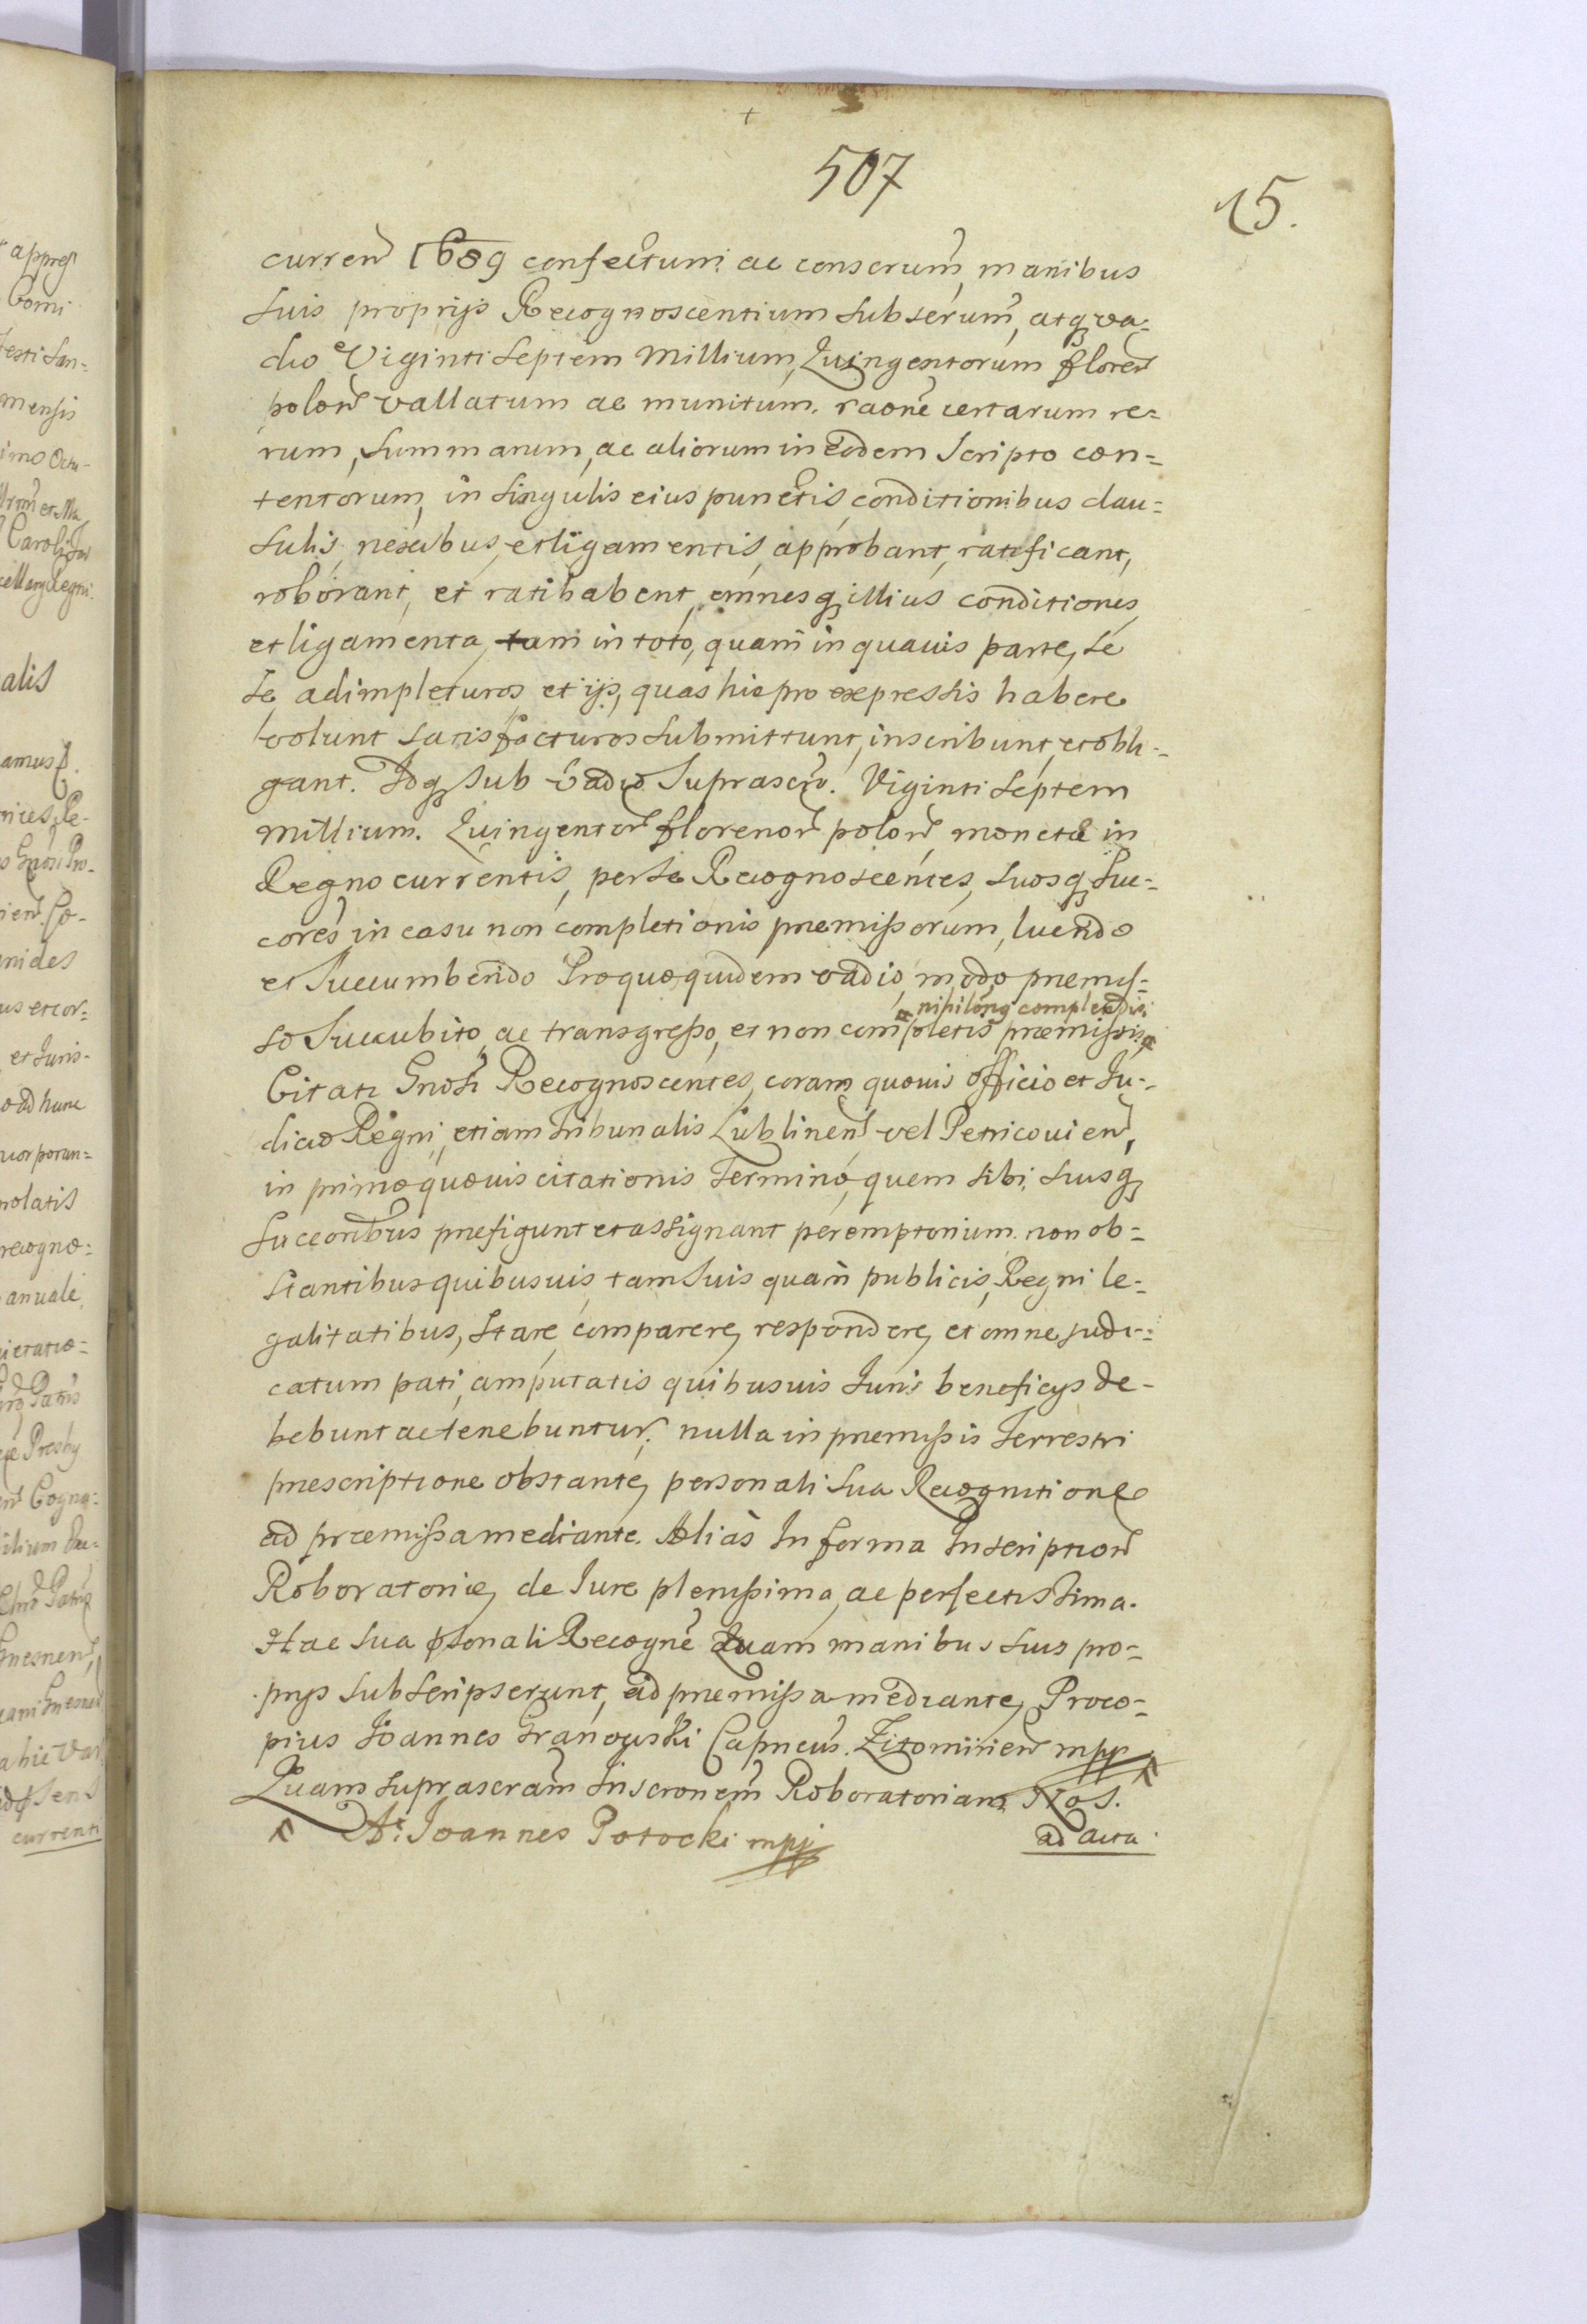 507
15.
curren 1689 confectum ac conscrum, manibus
suis proprijs Recognoscentium subscrum, atq va-
dio Viginti septem Millium, Quingentorum floren
polon vallatum ac munitum. raone certarum re-
rum, summarum, ac aliorum in eodem scripto con-
tentorum, in singulis eius punctis, conditionibus clau-
sulis, nexibus, et ligamentis, approbant, ratificant,
roborant, et ratihabent, omnesq illius conditiones,
et ligamenta, tam in toto, quam in quauis parte, se
se, adimpleturos, et ijs, quas hic pro expressis habere
volunt satisfacturos submittunt, inscribunt, et obli-
gant. Idq sub vadio suprascro. Viginti septem
millium. Quingentor florenor polon, monetæ in
Regno currentis, per se Recognoscentes, suosq suc-
cores in casu non completionis præmissorum, luendo
et succumbendo Proquo quidem vadio, modo præmis-
nihilonq complendis
so succubito, ac transgresso, et non completis præmissis,
Citati Gnosi Recognoscentes, coram quouis officio et Ju-
dicio Regni, etiam Tribunalis Lublinen vel Petricouien,
in primo quouis citationis Termino, quem sibi, suisq
succoribus præfigunt et assignant peremptorium. non ob-
stantibus quibusuis, tam suis quam publicis, Regni le-
galitatibus, stare, comparere, respondere, et omne judi-
catum pati, amputatis quibusuis Juris beneficijs de-
bebunt ac tenebuntur, nulla in præmissis Terrestri
præscriptione obstante, personali sua Recognitione
ad præmissa mediante. Alias In forma Inscription
Roboratoriæ, de Jure plenissima, ac perfectissima.
Hac sua psonali Recogne Quam manibus suis pro-
prijs subscripserunt, ad præmissa mediante, Proco-
pius Joannes Granowski Capneus. Zitomirien mpp
Quam suprascram Inscronem Roboratoriam Nos.
A. Joannes Potocki mpp
ad acta